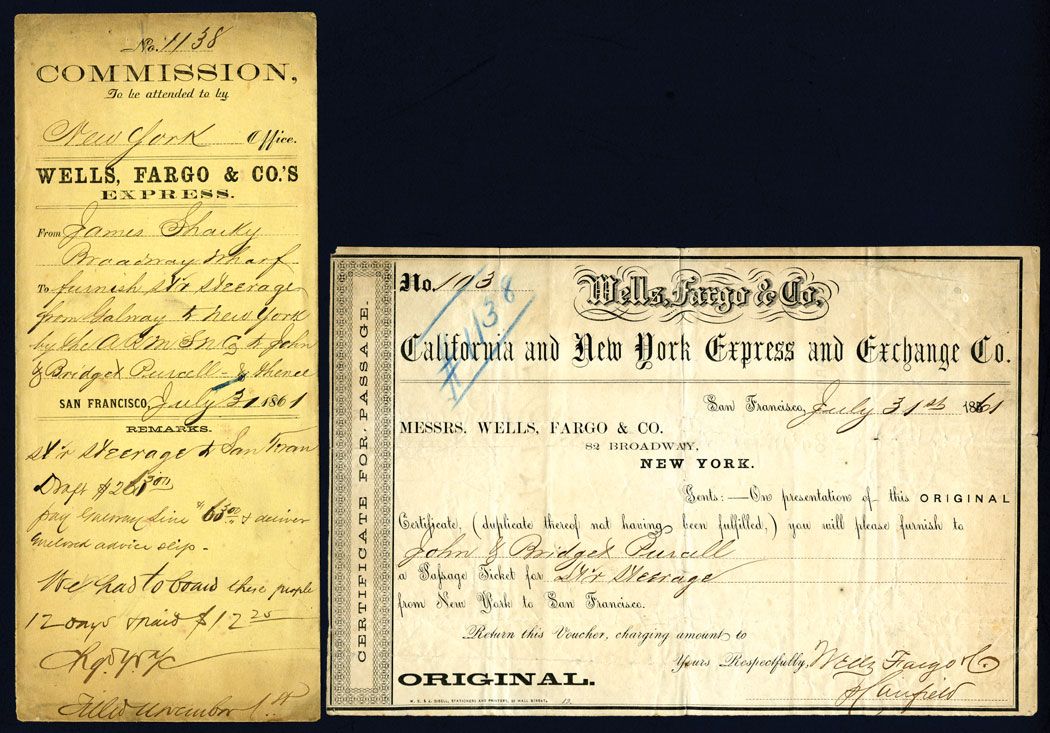 No. 1138
COMMISSION,
To be attended to by
New York Office.
WELLS, FARGO & CO.'S
EXPRESS.
From James Sharky
Broadway Wharf
To furnish st'r steerage
from Galway to New York
by the to John
& Bridget Purcell & thence
SAN FRANCISCO, July 31 1861
REMARKS.
st'r steerage to San Fran
Draft $
pay Galway Line $63 00 & deliver
enclosed advice slip.
We had to board these people
12 days & paid $12 25
Filled November 1st
CERTIFICATE FOR PASSAGE.
No. 193
#1138
Wells, Fargo & Co.,
California and New York Express and Exchange Co.
San Francisco, July 31st 1861
MESSRS. WELLS, FARGO & CO.
82 BROADWAY,
NEW YORK.
Gents:—On presentation of this ORIGINAL
Certificate, (duplicate thereof not having been fulfilled,) you will please furnish to
John & Bridget Purcell
a Passage Ticket for St'r Steerage
from New York to San Francisco.
Return this Voucher, charging amount to
Yours Respectfully, Wells Fargo & Co
ORIGINAL.
STATIONERS AND PRINTERS, WALL STREET,